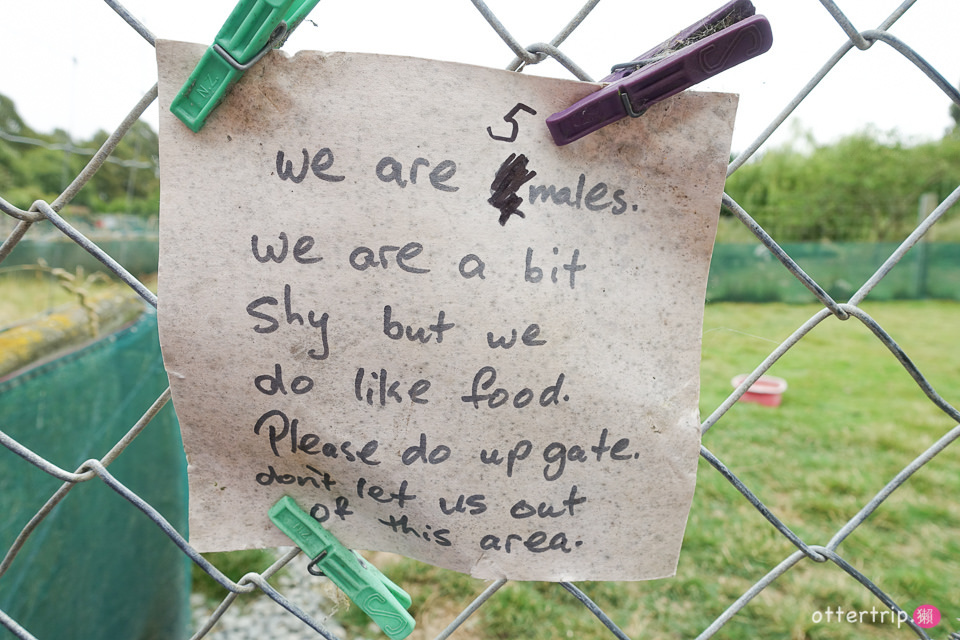 5
we are males.
we are a bit
shy but we
do like food.
Please do up gate.
don't let us out
of this area.
N.Z.
ottertrip.獺